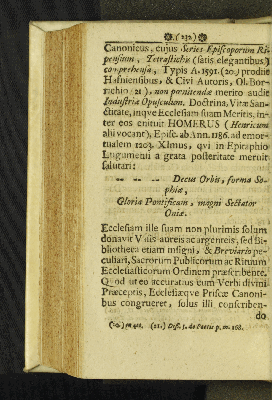 (232.)
Canonicus, cujus Series Episcoporum Ri-
pensium, Tetrastichis (satis elegantibus)
comprehensa, Typis A. 1591. (20.) prodiit
Hafniensibus, & Civi Autoris, Ol. Bor-
richio (21), non pœnitendæ merito audit
Industriæ Opusculum. Doctrina, Vitæ San-
ctitate, inqve Ecclesiam suam Meritis, in-
ter eos enituit HOMERUS (Henricum
alii vocant), Episc. ab Ann. 1186. ad emor-
tualem 1203. XImus, qvi in Epitaphio
Lugumenii a grata posteritate meruit
salutari:
-- -- -- Decus Orbis, forma So-
phiæ,
Gloria Pontificum, magni Sectator
Oniæ.
Ecclesiam ille suam non plurimis solum
donavit Vasis aureis ac argenteis, sed Bi-
bliotheca etiam insigni, & Breviario pe-
culiari, Sacrorum Publicorum ac Rituum
Ecclesiasticorum Ordinem præscribente.
Quod ut eo accuratius cum Verbi divini
Præceptis, Ecclesiæqve Priscæ Canoni-
bus congrueret, solus illi conscriben-
do
(21.) Diss. I. de Poetis p. m. 168.